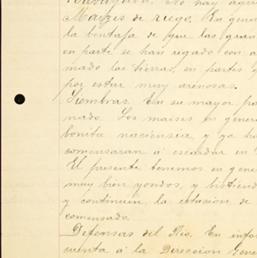 Maizes de riego. En gene
la ventaja de que las gran
en parte se han regado con a
mado las tierras, en partes y
por estar muy arenosas.
Siembras. En su mayor pa
nado. Los maises en gener
bonita naciensia y ya ha
comensaran á escardar en
El presente tenemos en gene
muy bien yondos, y
y continuen la estasion de
comensado.
Defensas del Rio. En info
cuenta á la Direccion Gene